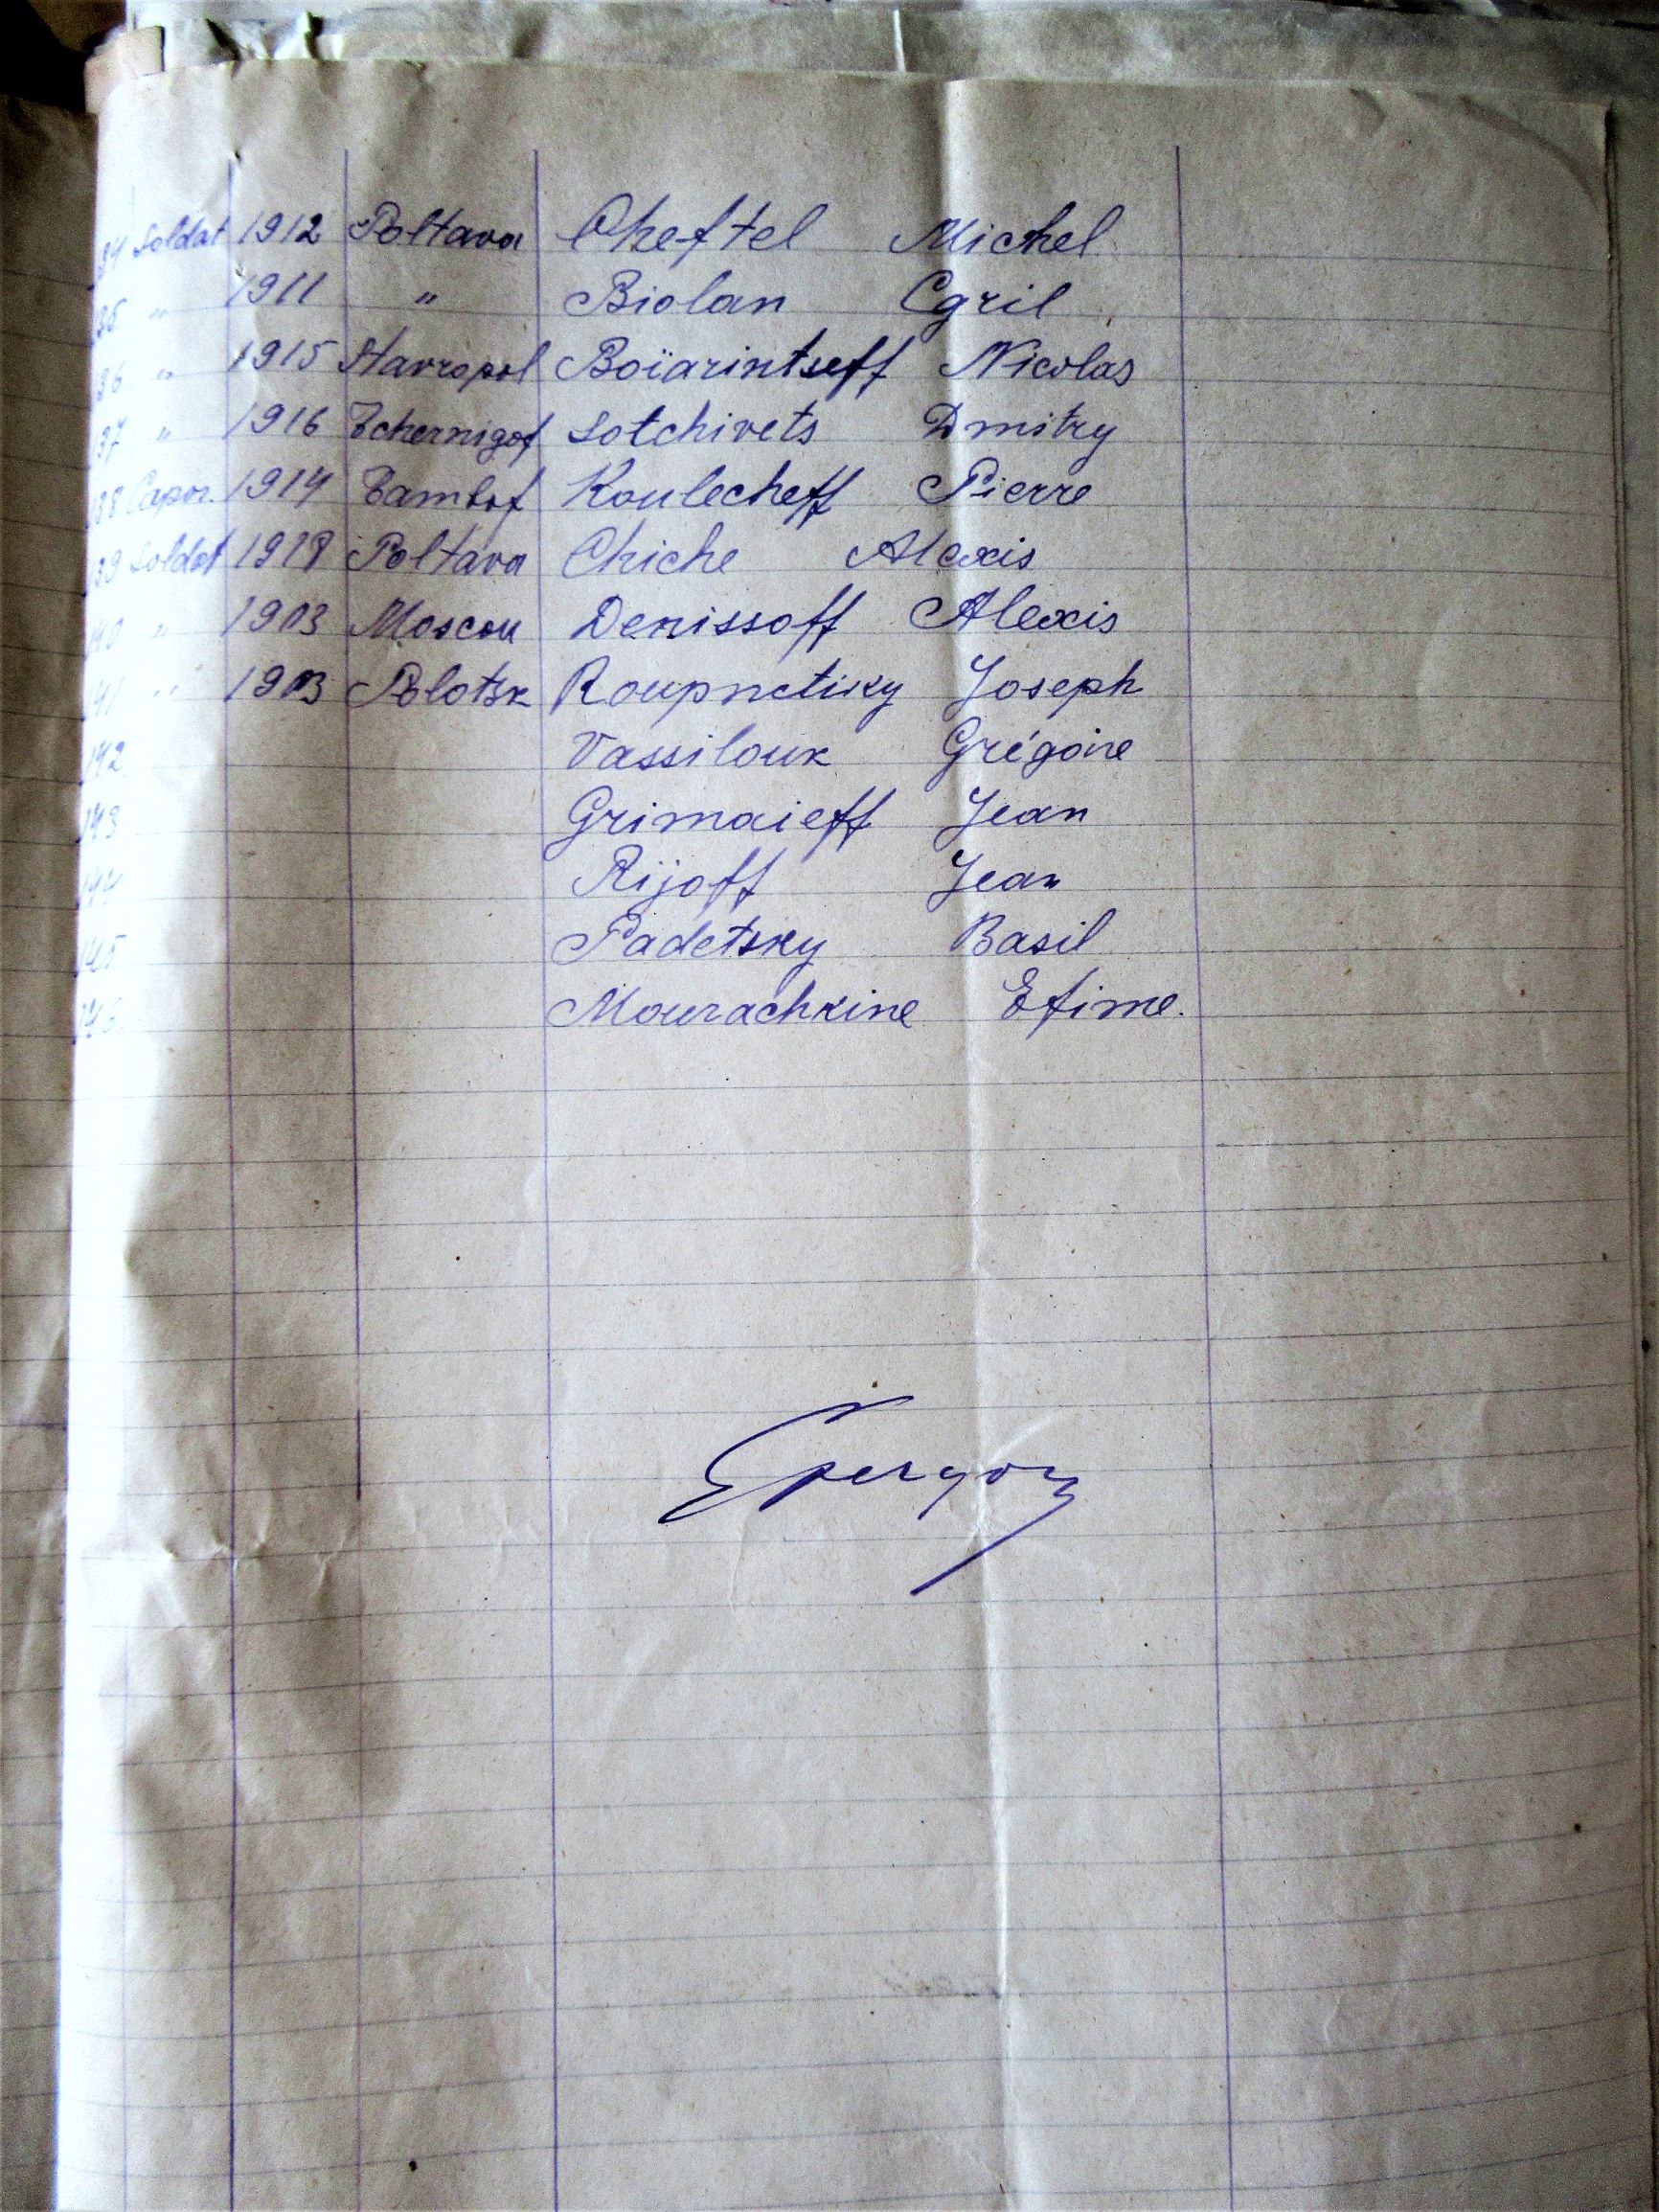 134 Soldat 1912 Poltava Cheftel Michel
135 " 1911 " Biolan Cyril
136 " 1915 Stavropol Boïarintseff Nicolas
137 " 1916 Tchernigof Sotchivets Dmitry
138 Capor. 1914 Tambof Koulecheff Pierre
139 Soldat Poltava Chiche Alexis
140 " 1903 Moscou Denissoff Alexis
141 " 1903 Polotsk Joseph
142 Vassilouk Grégoire
143 Grimaieff Jean
144 Rijoff Jean
145 Padetsky Basil
146 Mourachkine Efime.